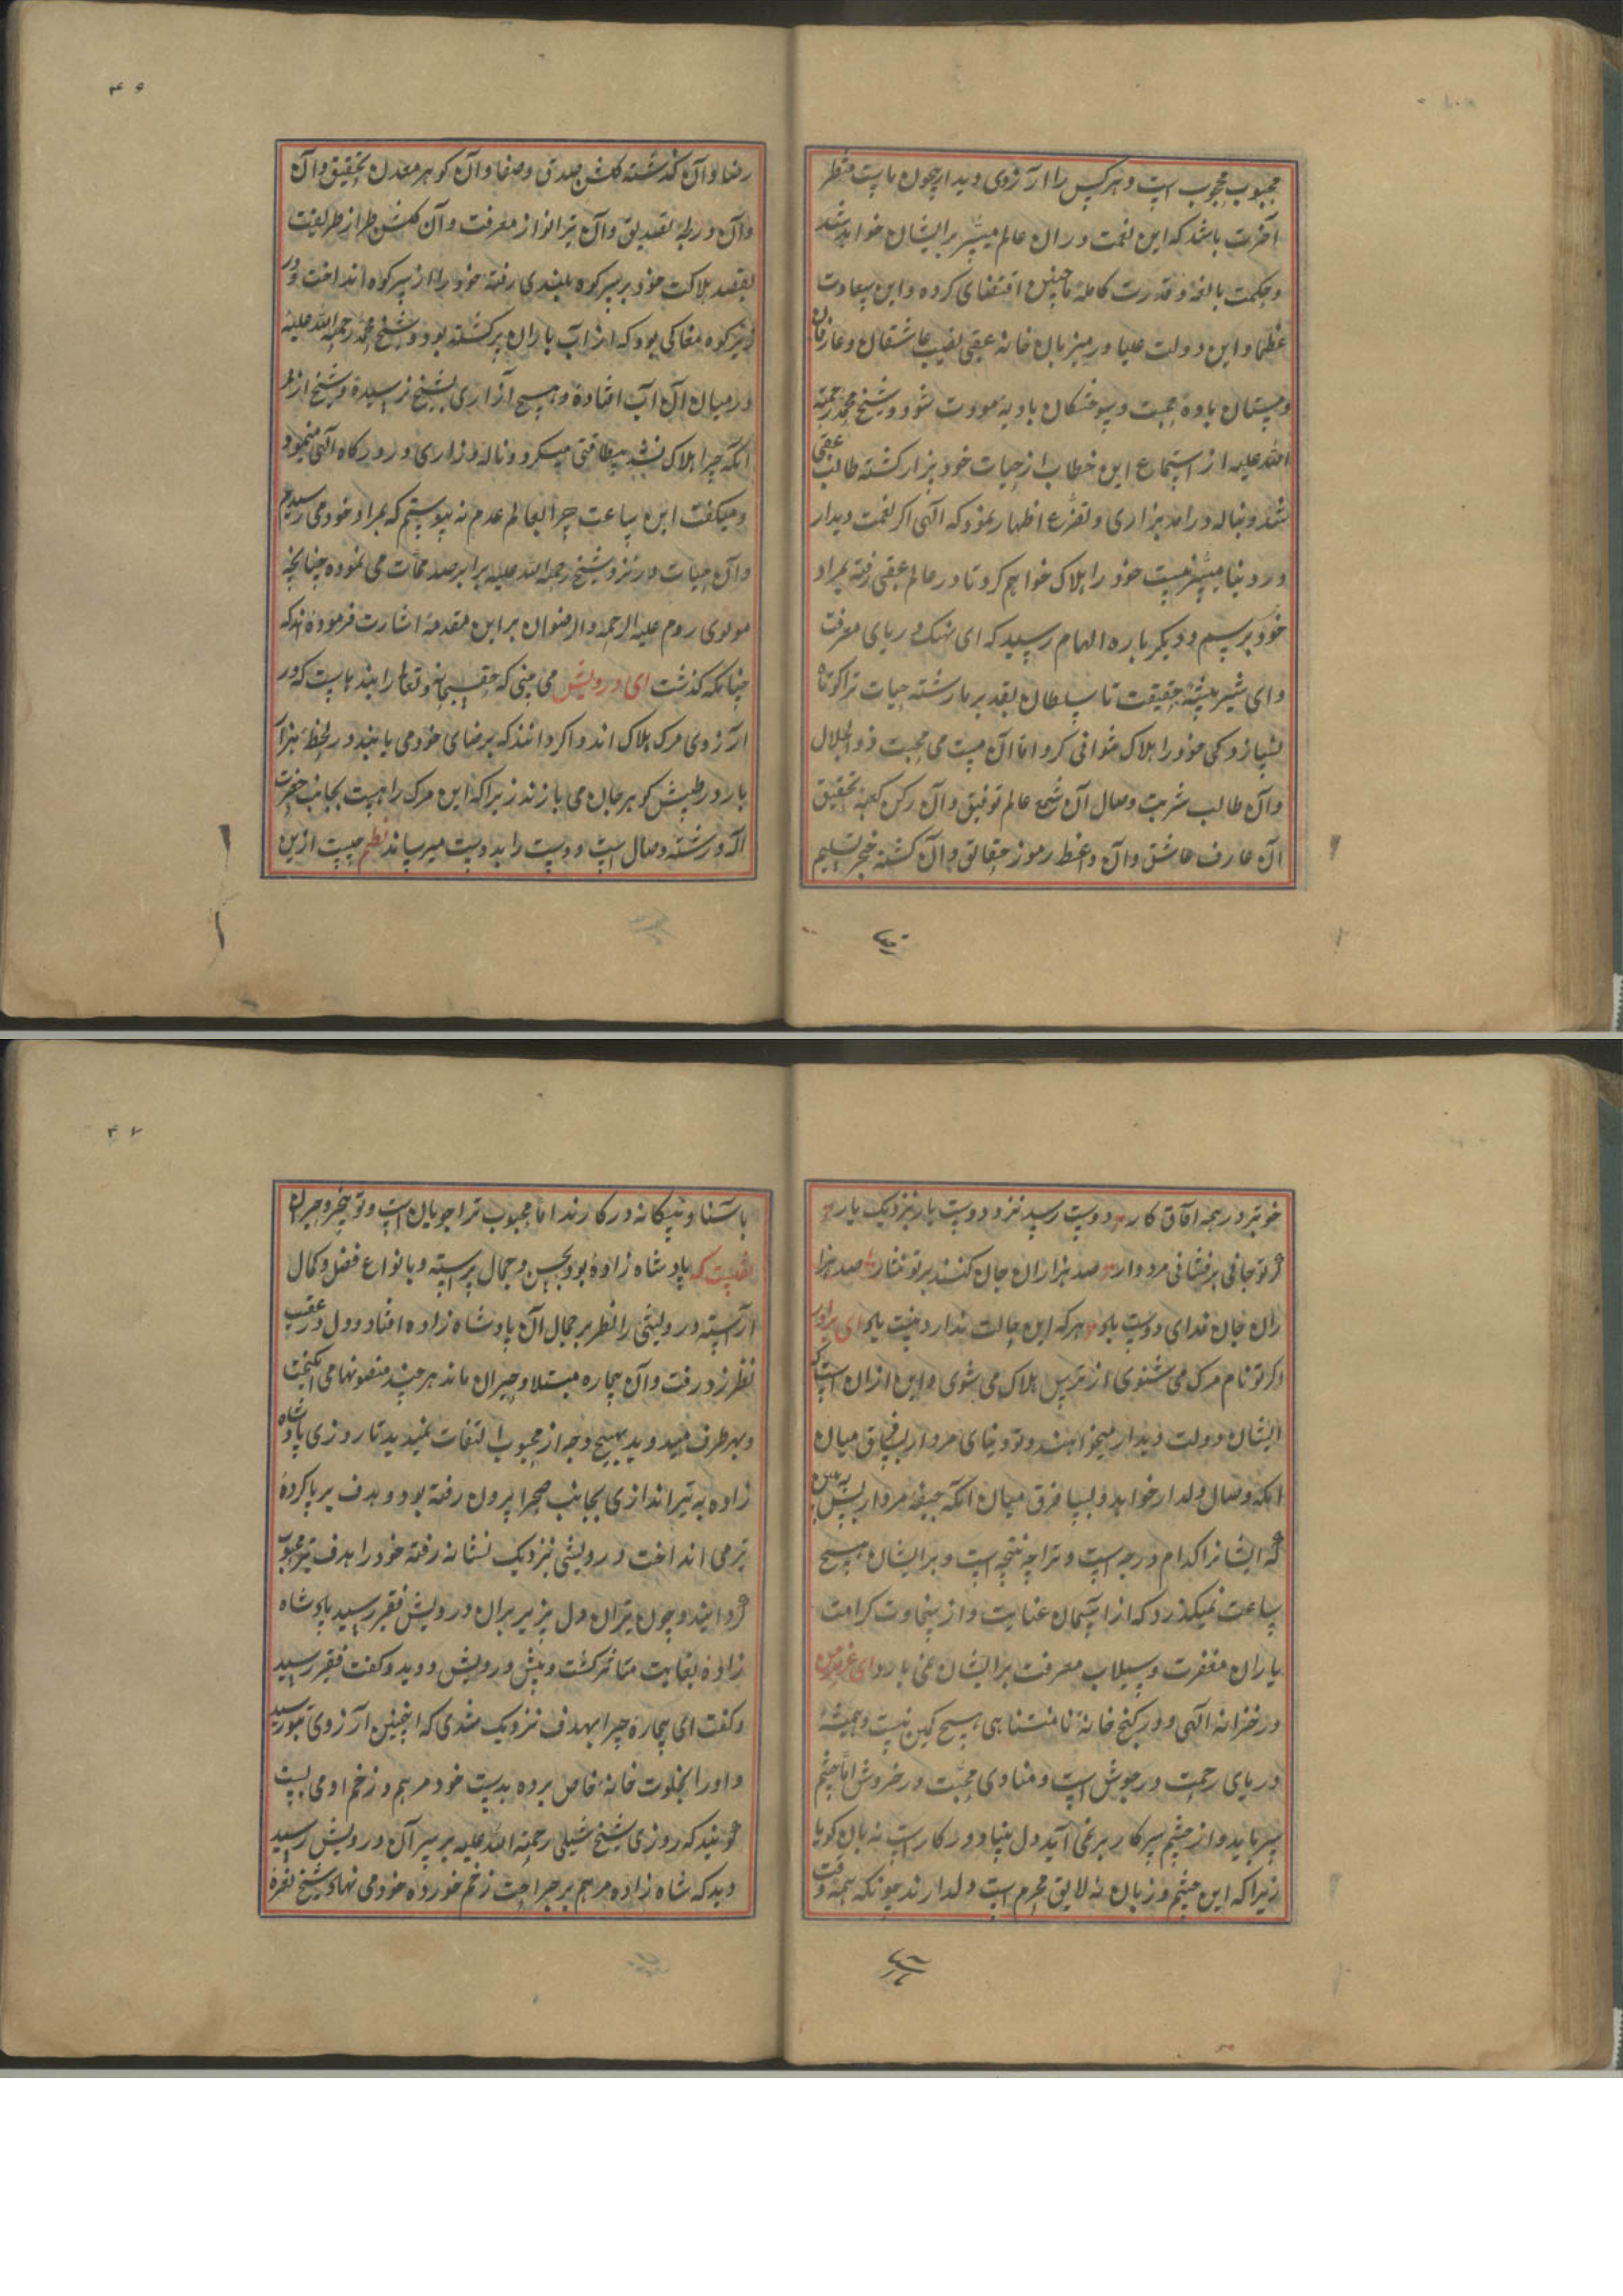 محبوب محجوب است و هر کس را آرزوی دیدار چون ماست منتظر
آخرت باشد که این نعمت در ان عالم میسر بر ایشان خواهد شد
و بحکمت بالغه و قدرت کامله ما چنین اقتضای کرده و این سعادت
عظما و این دولت علیا در میزبان خانه عقبی نصیب عاشقان و عارفان
و مستان باده محبت و سوختکان بادیه مودت شود و شیخ محمد رحمة
الله علیه از استماع این خطاب از حیات خود بیزار کشته طالب عقبی
شد و بناله در امد بزاری و تضرع اظهار نمود که الهی اکر نعمت دیدار
در دنیا میسر نیست خود را هلاک خواهم کرد تا در عالم عقبی رفته بمراد
خود برسم و دیکر باره الهام رسید که ای نهنک دریای معرفت
و ای شیر بیشه حقیقت تا سلطان تقدیر ما رشته حیات ترا کوتاه
نسازد کی خود را هلاک توانی کرد اما آن مست می محبت ذو الجلال
وان طالب شربت وصال آن شمع عالم توفیق و آن رکن کعبه تحقیق
آن عارف عاشق و آن واعظ رموز حقایق و آن کشته خنجر تسلیم
رضا و آن کذشته کلشن صدق و صفا و آن کوهر معدن تحقیق و آن
و آن ورطه تصدیق و آن تیر انوار معرفت و آن کلشن طراز طریقت
بقصد هلاکت خود بر سر کوه بلندی رفته خود را از سر کوه انداخت و در
زیر کوه مغاکی بود که از آب باران پر کشته بود و شیخ محمد رحمة الله علیه
در میان آن آب افتاده و هیچ آزاری بشیخ نرسیده و شیخ از
انکه چرا هلاک نشد بیطاقتی میکرد و ناله و زاری در درکاه الهی مینمود
و میکفت این ساعت چرا بعالم عدم نه پیوستم که بمراد خود می رسیدم
و آن حیات در نزد شیخ رحمة الله علیه برابر صد ممات می نموده چنانچه
مولوی روم علیه الرحمة و الرضوان بر این مقدمه اشارت فرموده اند که
چنانکه کذشت ای درویش می بینی که حق سبحانه و تعالی را بندهاست که در
آرزوی مرک هلاک اند و اکر دانند که برضای خود می یابند در لحظه هزار
بار در طپش کوهر جان می بازند زیرا که این مرک راهیست بجانب حضرت
اله و رشته وصال است و دوست را بدوست میرساند نظم چیست ازین
خوبتر در همه آفاق کار دوست رسید نزد دوست یار بنزدیک یار
کر تو جانی برفشانی مردوار صد هزاران جان کنند بر تو نثار صد هزا
ران جان فدای دوست باد هر که این حالت ندارد نیست باد ای برادر
و کر تو نام مرک می شنوی از ترس هلاک می شوی و این از ان است که
ایشان دولت دیدار میخواهند و تو دنیای مردار پس فرق میان
انکه وصال دلدار خواهد و بسیار فرق میان انکه جیفه مردار پس ببین
که ایشانرا کدام درجه است و ترا چه نتیجه است و بر ایشان هیچ
ساعت نمیکذرد که از آسمان عنایت و از سخاوت کرامت
باران مغفرت و سیلاب معرفت بر ایشان نمی بارد ای عزیز من
در خزانه الهی و در کنج خانه نا متناهی هیچ کمی نیست و همیشه
دریای رحمت در جوش است و منادی محبت در خروش اما چشم
سر باید و از چشم سر کار بر نمی آید دل بینا در کار است نه زبان کویا
زیرا که این چشم و زبان نه لایق محرم است دلدارند چونکه همه وقت
با آشنا و بیکانه در کارند اما محبوب ترا جویان است و تو بیخبر و حیران
نقلست که پادشاه زاده بود بحسن و جمال پرسته و بانواع فضل و کمال
آراسته درویشی را نظر بر جمال آن پادشاه زاده افتاد و دل در عقب
نظر زد رفت و آن بیچاره مبتلا و حیران ماند هر چند منصوبها می انکیخت
و بهر طرف میدوید بهیچ وجه از محبوب التفات نمیدید تا روزی پادشاه
زاده به تیراندازی بجانب صحرا بیرون رفته بود و هدف بر پا کرده
تیر می انداخت درویشی نزدیک نشانه رفته خود را هدف تیر محبوب
کردانید و چون تیران دل پزیر بران درویش فقیر رسید پادشاه
زاده بغایت متاثر کشت و پیش درویش دوید و کفت فقیر رسید
و کفت ای بیچاره چرا بهدف نزدیک شدی که اینچنین آرزوی بتو رسید
و اورا بخلوت خانه خاص برده بدست خود مرهم و زخم او می بست
کویند که روزی شیخ شبلی رحمة الله علیه بر سر آن درویش رسید
دید که شاه زاده مرهم بر جراحت زخم خورده خود می نهاد شیخ نعره